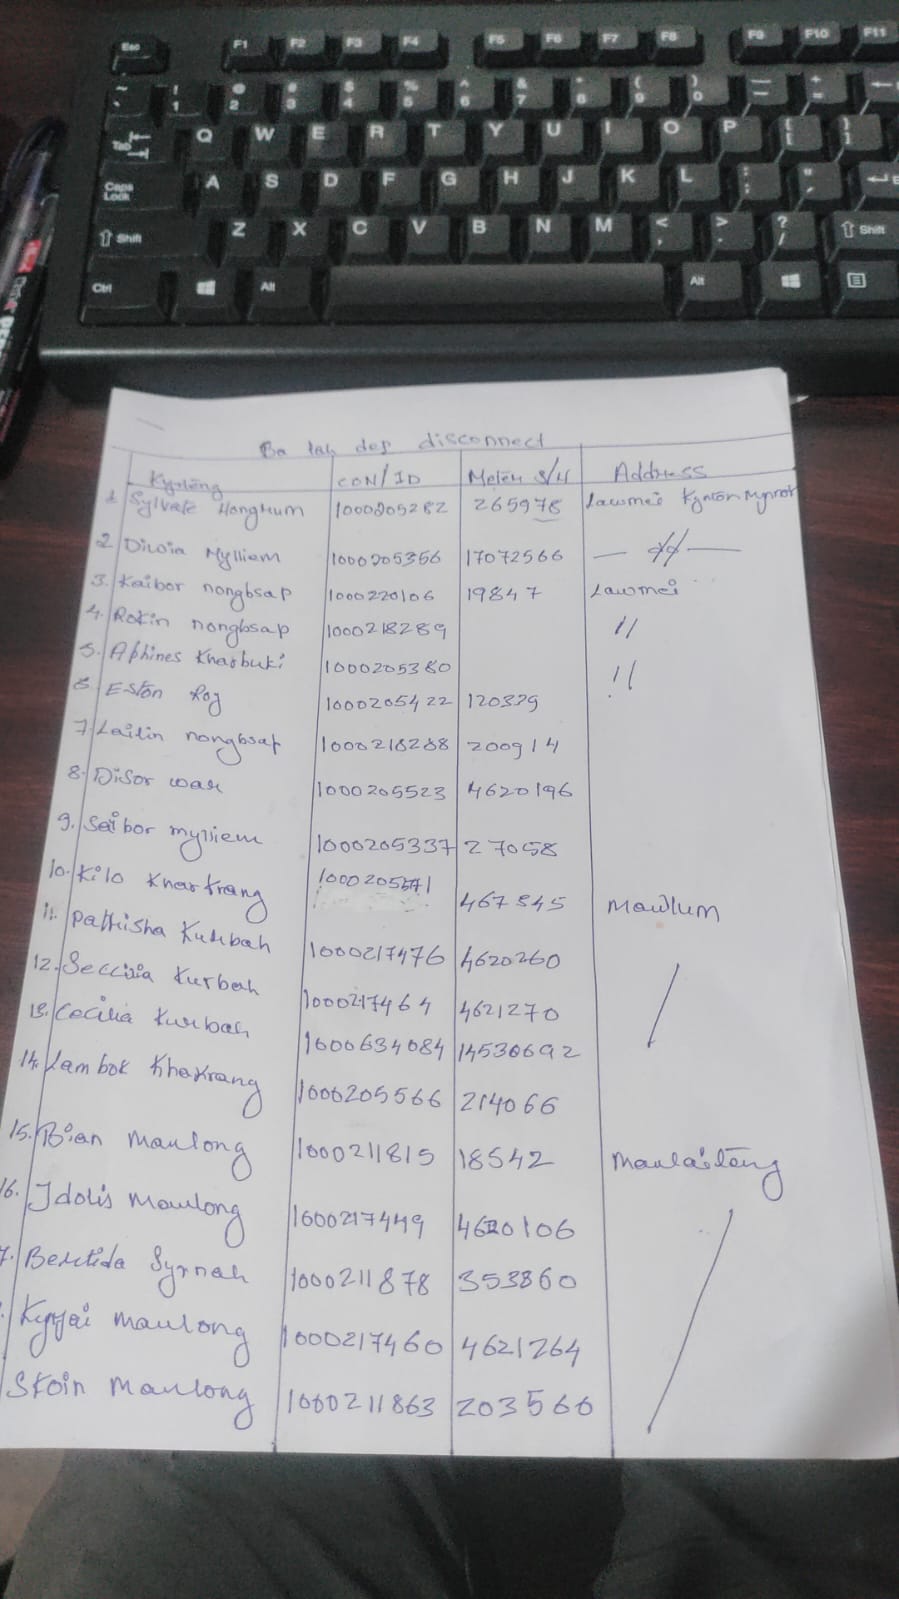 Esc F1 F2 F3 F4 F5 F6 F7 F8 F9 F10 F11
~ ! 1 @ 2 # 3 $ 4 % 5 ^ 6 & 7 * 8 ( 9 ) 0 — + =
Tab Q W E R T Y U I O P { [ } ]
Caps Lock A S D F G H J K L : ; " '
Shift Z X C V B N M < , > . ? / Shift
Ctrl Alt Alt
Ba lah dep disconnect
Kyrteng CON/ID Meter S/N Address
1. Sylvate 1000205282 265978 Lawmei
2. Mylliem 1000205356 17072566 — 〃 —
3. Kaibor nongbsap 1000220106 19847 Lawmei
4. Rokin nongbsap 1000218289 〃
5. Aphines Kharbuki 1000205380 〃
6. Eston Roy 1000205422 120379
7. Lailin nongbsap 1000218288 200914
8. Disor war 1000205523 4620196
9. Saibor mylliem 1000205337 27058
10. Kilo Kharkrang 1000205571 467845 Mawlum
11. Pathisha Kurbah 1000217476 4620260
12. Seccilia Kurbah 1000217464 4621270
13. Cecilia Kurbah 1000634084 14530692
14. Lambok Khakrang 1000205566 214066
15. Bian Mawlong 1000211815 18542 Mawlaiteng
16. Idolis Mawlong 1000217449 4620106
7. Bertida Syrnah 1000211878 353860
Mawlong 1000217460 4621264
Skoin Mawlong 1000211863 203566